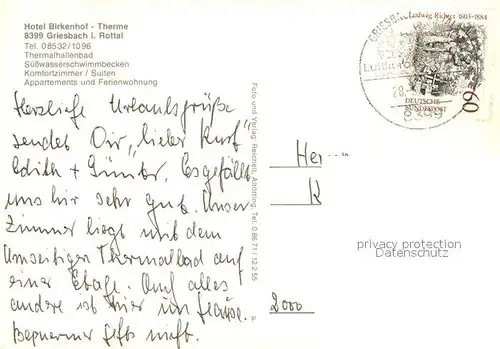 Hotel Birkenhof - Therme
8399 Griesbach i. Rottal
Tel. 08532/1096
Thermalhallenbad
Süßwasserschwimmbecken
Komfortzimmer / Suiten
Appartements und Ferienwohnung
Herzliche Urlaubsgrüße
sendet Dir, lieber Kurt
Edith + Günter. Es gefällt
uns hier sehr gut. Unser
Zimmer liegt mit dem
Thermalbad auf
einer Etage. Und alles
andere ist hier im Hause.
Bequemer geht's nicht.
Foto und Verlag: Reichelt, Altötting, Tel. 0 86 71 / 12 2 55
P
GRIESBACH
Luftkurort
28.
8399
Ludwig Richter 1803-1884
60
DEUTSCHE
BUNDESPOST
Herrn
K
2000
privacy protection
Datenschutz